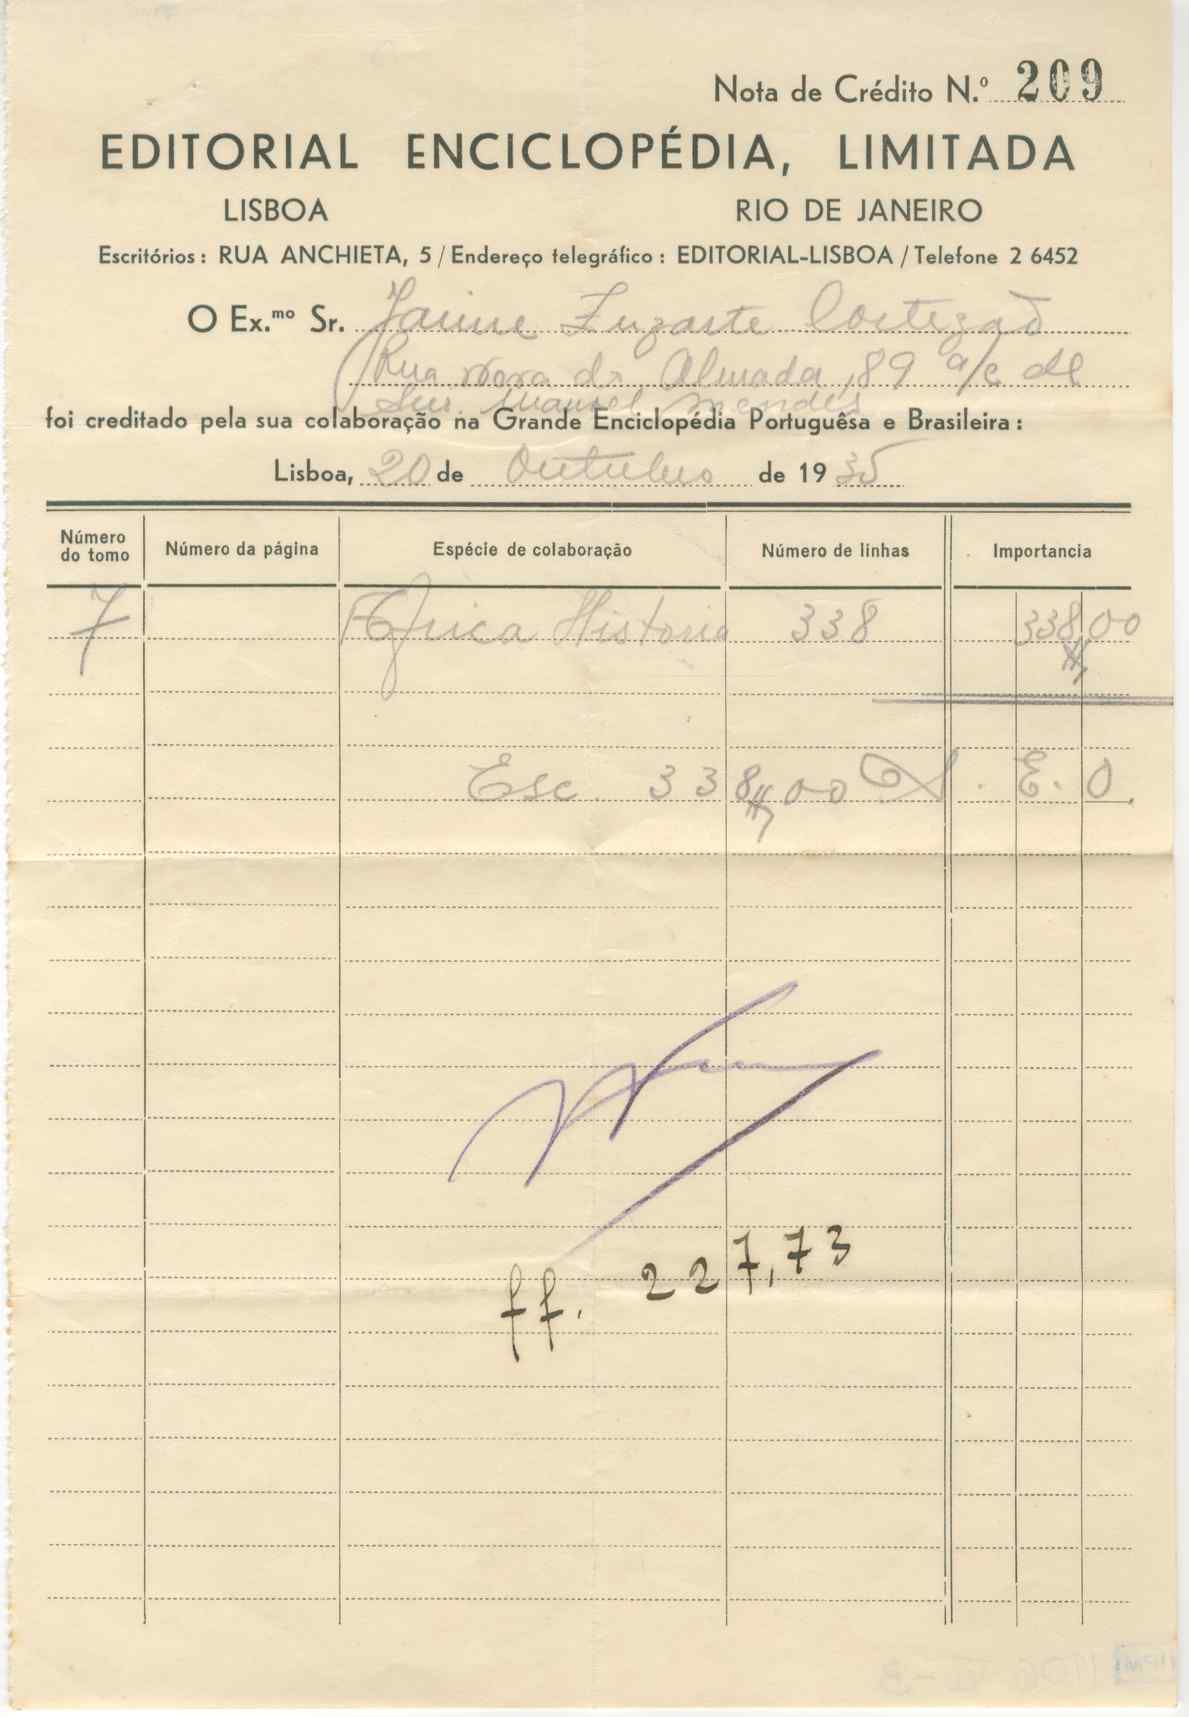 Nota de Crédito N.º 209
EDITORIAL ENCICLOPÉDIA, LIMITADA
LISBOA RIO DE JANEIRO
Escritórios: RUA ANCHIETA, 5 / Endereço telegráfico: EDITORIAL-LISBOA / Telefone 2 6452
O Ex.mo Sr. Jaime Zuzarte Cortezão
Rua Nova do Almada, 89 a/c de
Snr. Manuel Mendes
foi creditado pela sua colaboração na Grande Enciclopédia Portuguêsa e Brasileira:
Lisboa, 20 de Outubro de 1935
Número do tomo Número da página Espécie de colaboração Número de linhas Importancia
7 Africa Historia 338 338$00
Esc. 338$00 S. E. O.
ff. 227,73